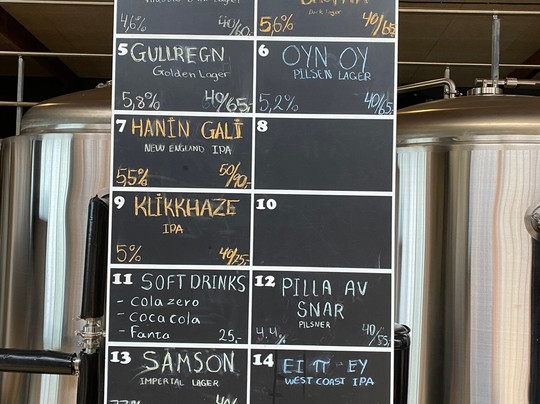 4,6%
5,6%
Dark Lager
40/65,-
5 GULLREGN
Golden Lager
5,8%
49/65,-
6 OYN OY
PILSEN LAGER
5,2%
40/65,-
7 HANIN GALI
NEW ENGLAND IPA
5,5%
50/90,-
8
9 KLIKKHAZE
IPA
5%
40/75,-
10
11 SOFT DRINKS
- Cola zero
- Coca cola
- Fanta
25,-
12 PILLA AV
SNAR
PILSNER
4,4%
40/55,-
13 SAMSON
IMPERIAL LAGER
14 EI π - EY
WEST COAST IPA